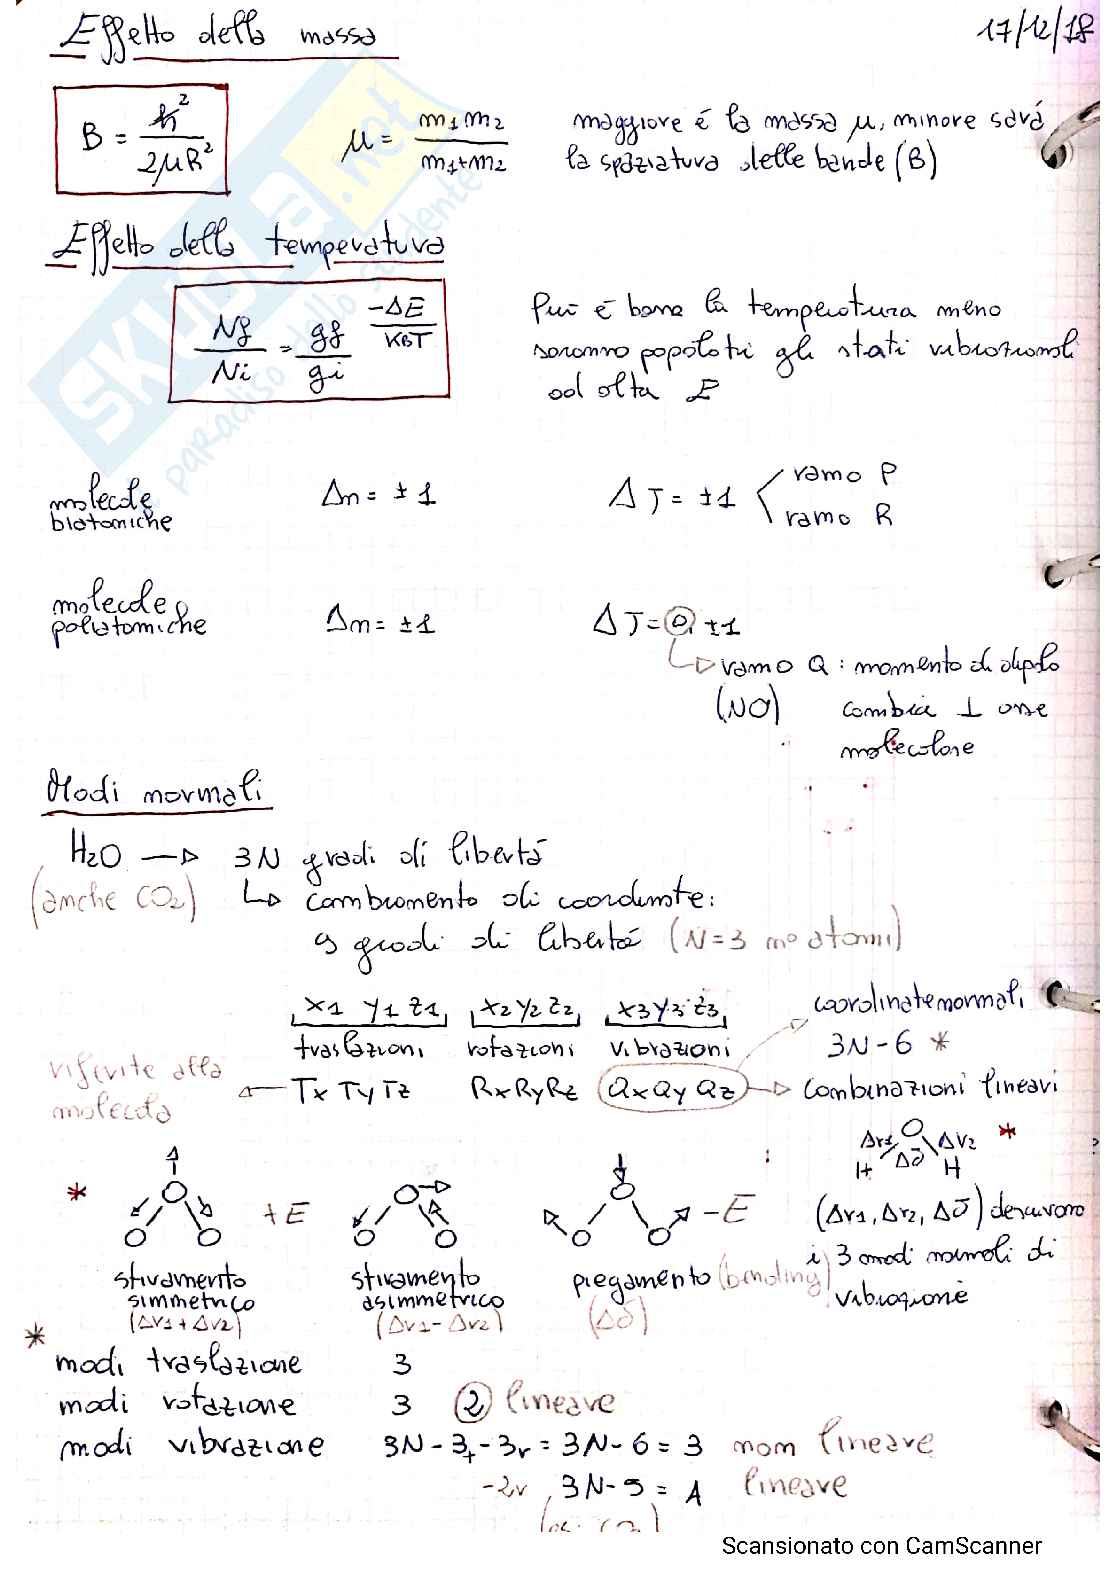 Effetto della massa 17/12/18
B = ħ² / 2μR² μ = m1m2 / m1+m2 maggiore é la massa μ, minore sará
la spaziatura delle bande (B)
Effetto della temperatura
Nf / Ni = gf / gi -ΔE / KBT Piú é bassa la temperatura meno
saranno popolati gli stati vibrazionali
ad alta E
molecole biatomiche Δn = ±1 ΔJ = ±1 ramo P
ramo R
molecole poliatomiche Δn = ±1 ΔJ = 0, ±1
ramo Q : momento di dipolo
(NO) cambia ⊥ asse
molecolare
Modi normali
H2O → 3N gradi di libertá
(anche CO2) ↳ cambiamento di coordinate:
9 gradi di libertá (N=3 n° atomi)
x1 y1 z1 x2 y2 z2 x3 y3 z3 coordinate normali
traslazioni rotazioni vibrazioni 3N-6 *
riferite alla molecola ← Tx Ty Tz Rx Ry Rz Qx Qy Qz → combinazioni lineari
Δr1 O Δr2 *
H Δδ H
* +E -E (Δr1, Δr2, Δδ) descrivono
i 3 modi normali di
vibrazione
stiramento simmetrico (Δr1 + Δr2)
stiramento asimmetrico (Δr1 - Δr2)
piegamento (bending) (Δδ)
*
modi traslazione 3
modi rotazione 3 2 lineare
modi vibrazione 3N - 3t - 3r = 3N - 6 = 3 non lineare
-2r, 3N - 5 = 4 lineare
Scansionato con CamScanner
SKUOLA.net
il paradiso dello studente